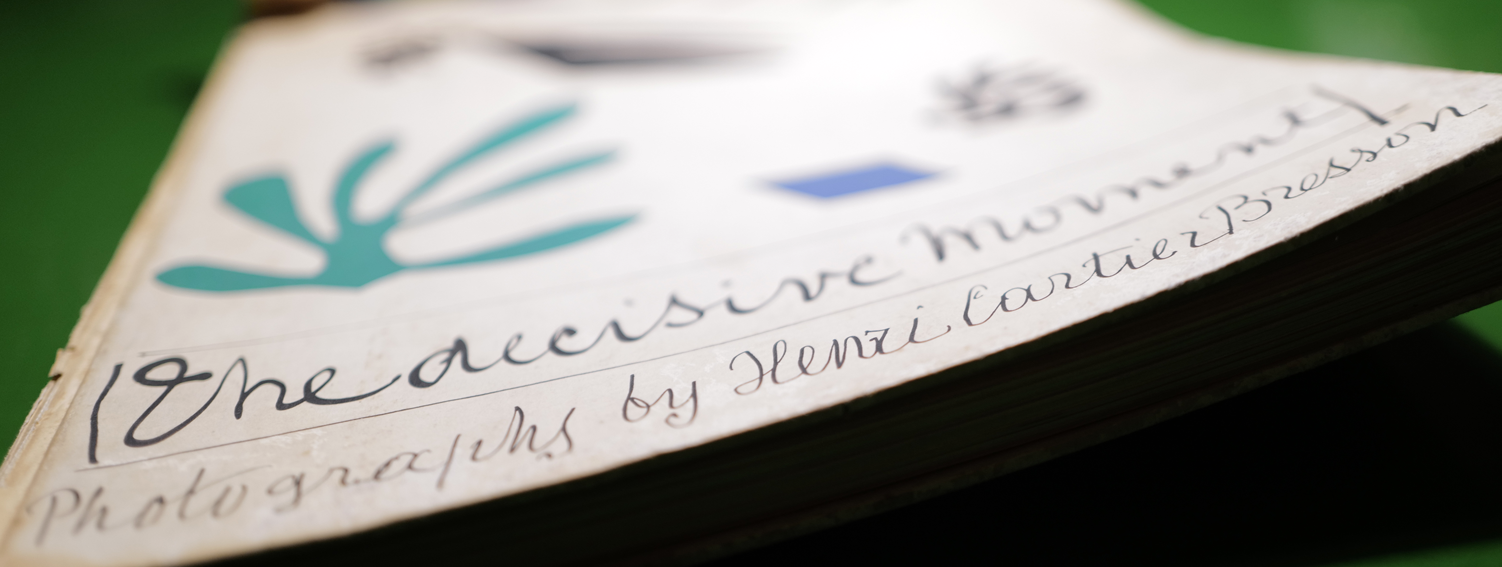 The decisive moment
Photographs by Henri Cartier Bresson